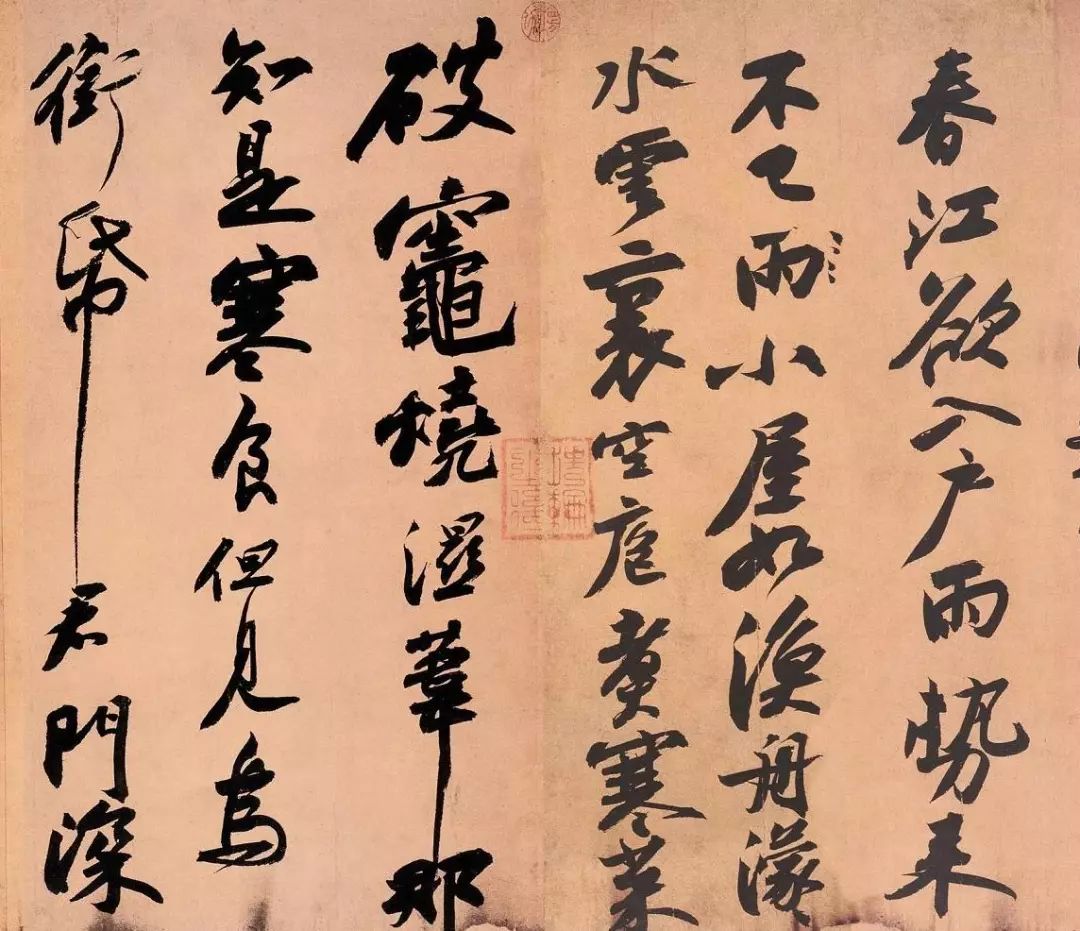 春江欲入戶雨勢来
不已雨小屋如漁舟濛〻
水雲裏空庖煮寒菜
破竈燒濕葦那
知是寒食但見烏
銜帋君門深